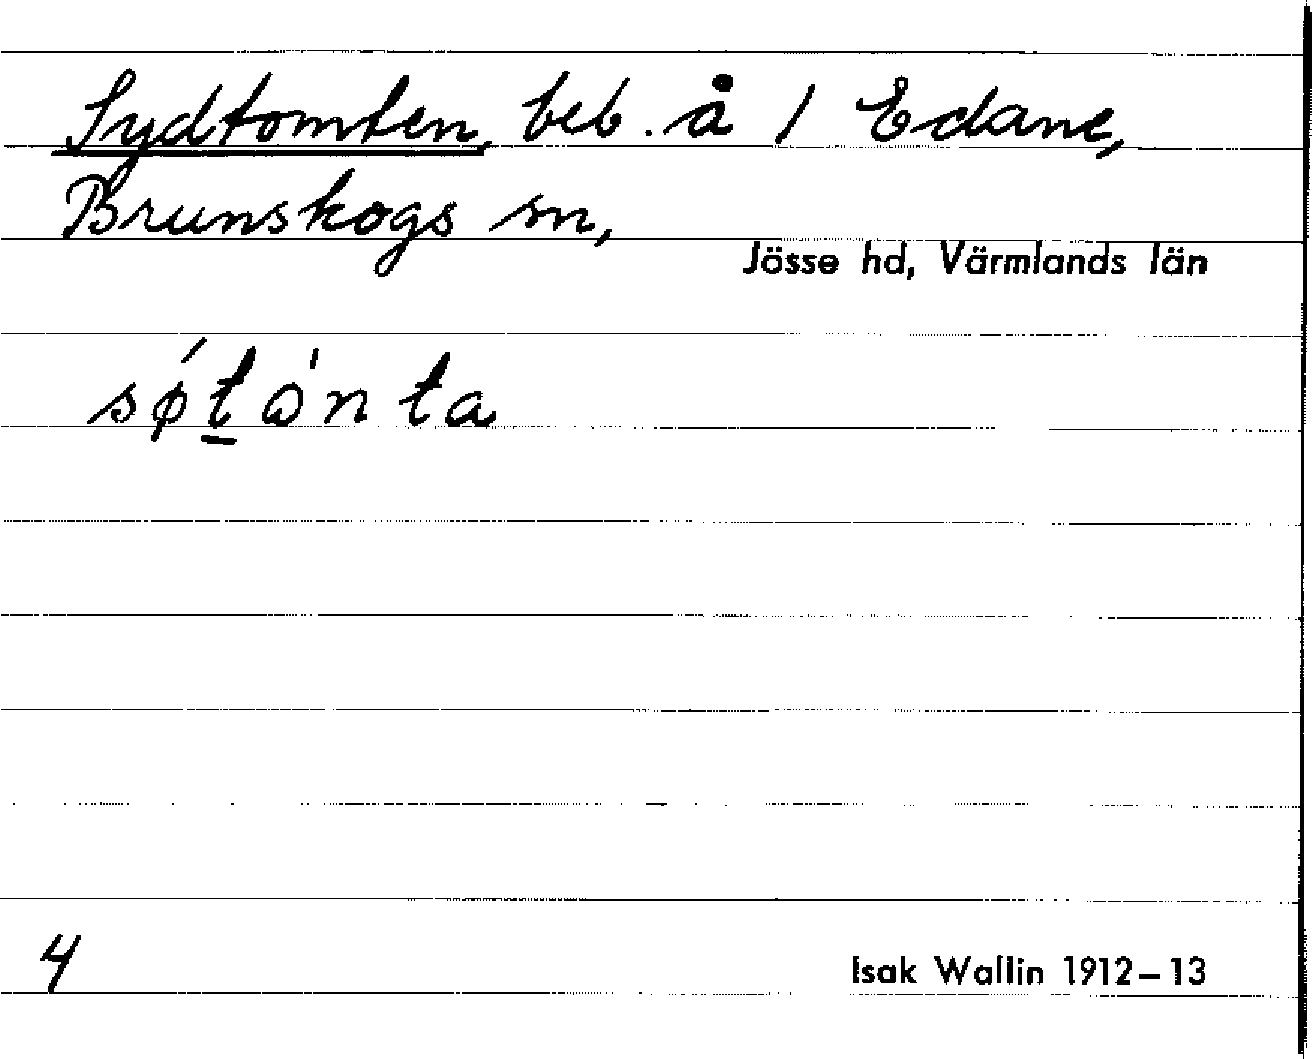 Sydtomten, beb. å 1 Edane,
Brunskogs sn,
Jösse hd, Värmlands län
sǿt̲ò̀nta
4
Isak Wallin 1912–13